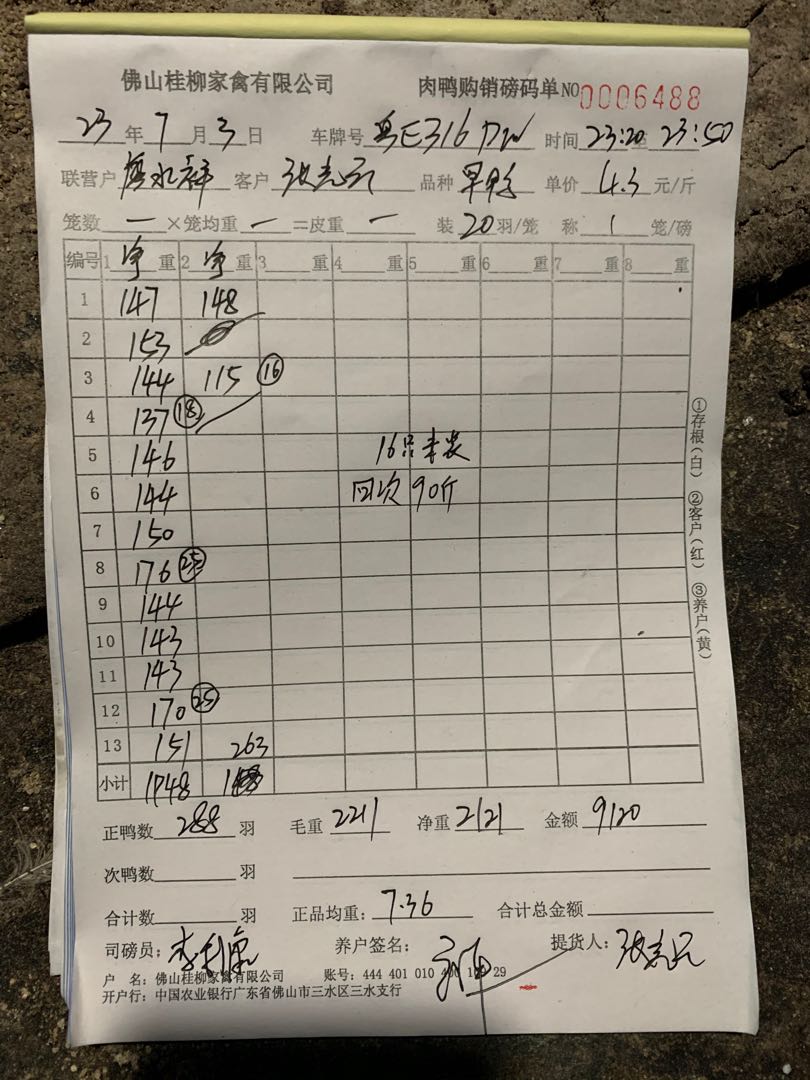 佛山桂柳家禽有限公司 肉鸭购销磅码单 NO 0006488
23 年 7 月 3 日 车牌号 粤E316DW 时间 23:20 23:50
联营户 客户 张志元 品种 早鸭 单价 4.3 元/斤
笼数 一 ×笼均重 一 =皮重 一 装 20 羽/笼 称 1 笼/磅
编号 1 净 重 2 净 重 3 重 4 重 5 重 6 重 7 重 8 重
1 147 148
2 153
3 144 115 ⑯
4 137 ⑱
5 146 16只未装
6 144 回次 90斤
7 150
8 176 ㉕
9 144
10 143
11 143
12 170 ㉕
13 151 263
小计 1948
正鸭数 288 羽 毛重 2211 净重 2121 金额 9120
次鸭数 羽
合计数 羽 正品均重: 7.36 合计总金额
司磅员: 养户签名: 提货人: 张志元
户 名: 佛山桂柳家禽有限公司 账号: 444 401 010 400 29
开户行: 中国农业银行广东省佛山市三水区三水支行
①存根(白) ②客户(红) ③养户(黄)